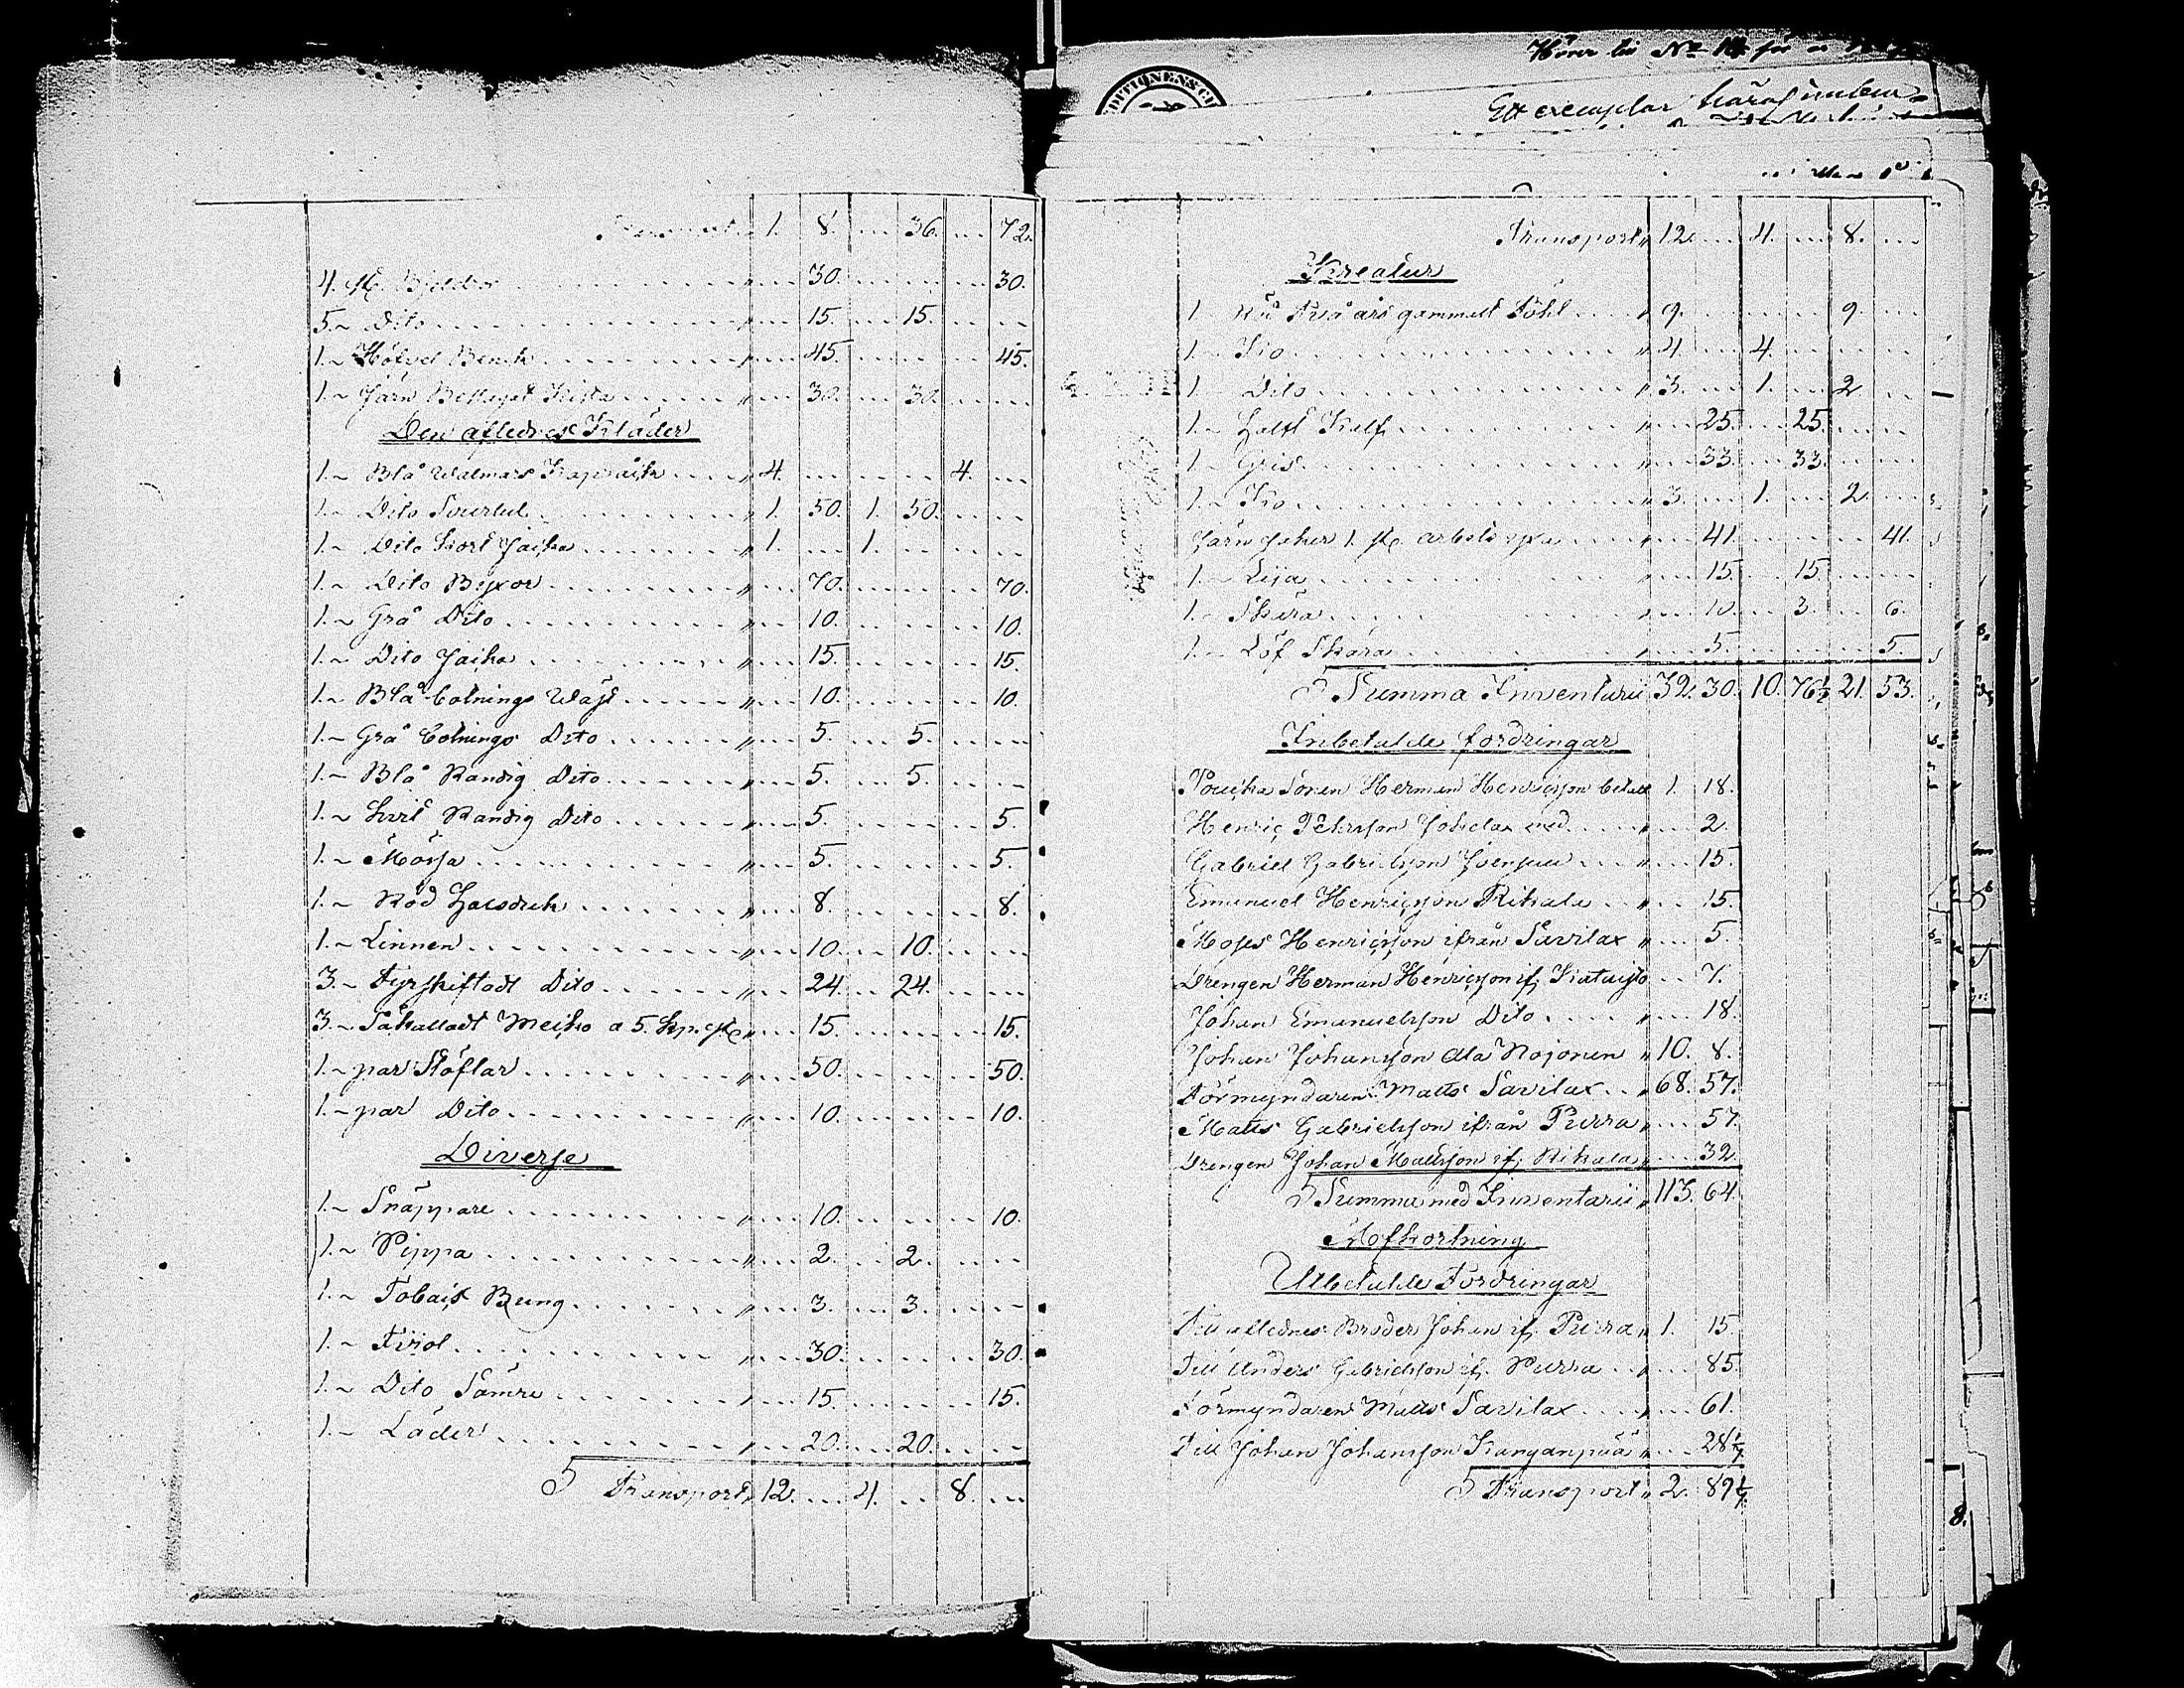 Transport „ 1. 8. 36. 72.
4. st. 30. 30.
5. ~ Dito 15. 15.
1. ~ Benck 45. 45.
1. ~ Järn Beslaget Kista 30. 30.
Den aflednes Kläder
1. ~ Blå Walmars Kapråck 4. 4.
1. ~ Dito Sourtut 1. 50. 1. 50.
1. ~ Dito Kort Jacka 1. 1.
1. ~ Dito Byxor 70. 70.
1. ~ Grå Dito 10. 10.
1. ~ Dito Jacka 15. 15.
1. ~ Blå Cotnings Wäst 10. 10.
1. ~ Grå Cotnings Dito 5. 5.
1. ~ Blå Randig Dito 5. 5.
1. ~ Hvit Randig Dito 5. 5.
1. ~ Mössa 5. 5.
1. ~ Röd Halsduk 8. 8.
1. ~ Linnen 10. 10.
3. ~ Fyrskiftadt Dito 24. 24.
3. ~ Såkalladt Meiko a 5. kp. st. 15. 15.
1. ~ par Stöflar 50. 50.
1. ~ par Dito 10. 10.
Diverse
1. ~ Snäppare 10. 10.
1. ~ Pippa 2. 2.
1. ~ Tobaks Pung 3. 3.
1. ~ 30. 30.
1. ~ Dito Sämre 15. 15.
1. ~ Läder 20. 20.
Transport „ 12. 4. 8.
Hörer till No 14
Ett exemplar häraf
Transport „ 12. 4. 8.
Kreatur
1. Två års gammalt Föhl 9. 9.
1. ~ Ko 4. 4.
1. ~ Dito 3. 1. 2
1. ~ Kalf 25. 25.
1. ~ Gris 33. 33.
1. ~ Ko 3. 1. 2.
Järnsaker 1. st. arbets yxa 41. 41.
1. ~ Lija 15. 15.
1. ~ Skära 10. 3. 6.
1. ~ Löf Skära 5. 5.
Summa Inventarii 32. 30. 10. 76½ 21. 53.
Inbetalde fordringar
Sonen Herman Henricsson betalt 1. 18.
Henric Pehrsson med 2.
Gabriel Gabrielsson 15.
Emanuel Henricsson Rikala 15.
Moses Henricsson ifrån Savilax „ 5.
Drengen Herman Henricsson if. Kataisto 7.
Johan Emanuelsson Dito 18.
Johan Johansson Ala Nojonen „ 10. 8.
Förmyndaren Matts Savilax 68. 57.
Matts Gabrielsson ifrån Purra „ 57.
Drengen Johan Mattsson if. Rikala „ 32
Summa med Inventarii „ 113. 64.
Afkortning
Utbetalde Fordringar
Till aflednes Broder Johan if. Purra „ 1. 15.
Till Anders Gabrielsson if. Purra 85.
Förmyndaren Matts Savilax 61.
Till Johan Johansson Kanganpää „ 28 4/7
Transport „ 2. 89 4/7
8.